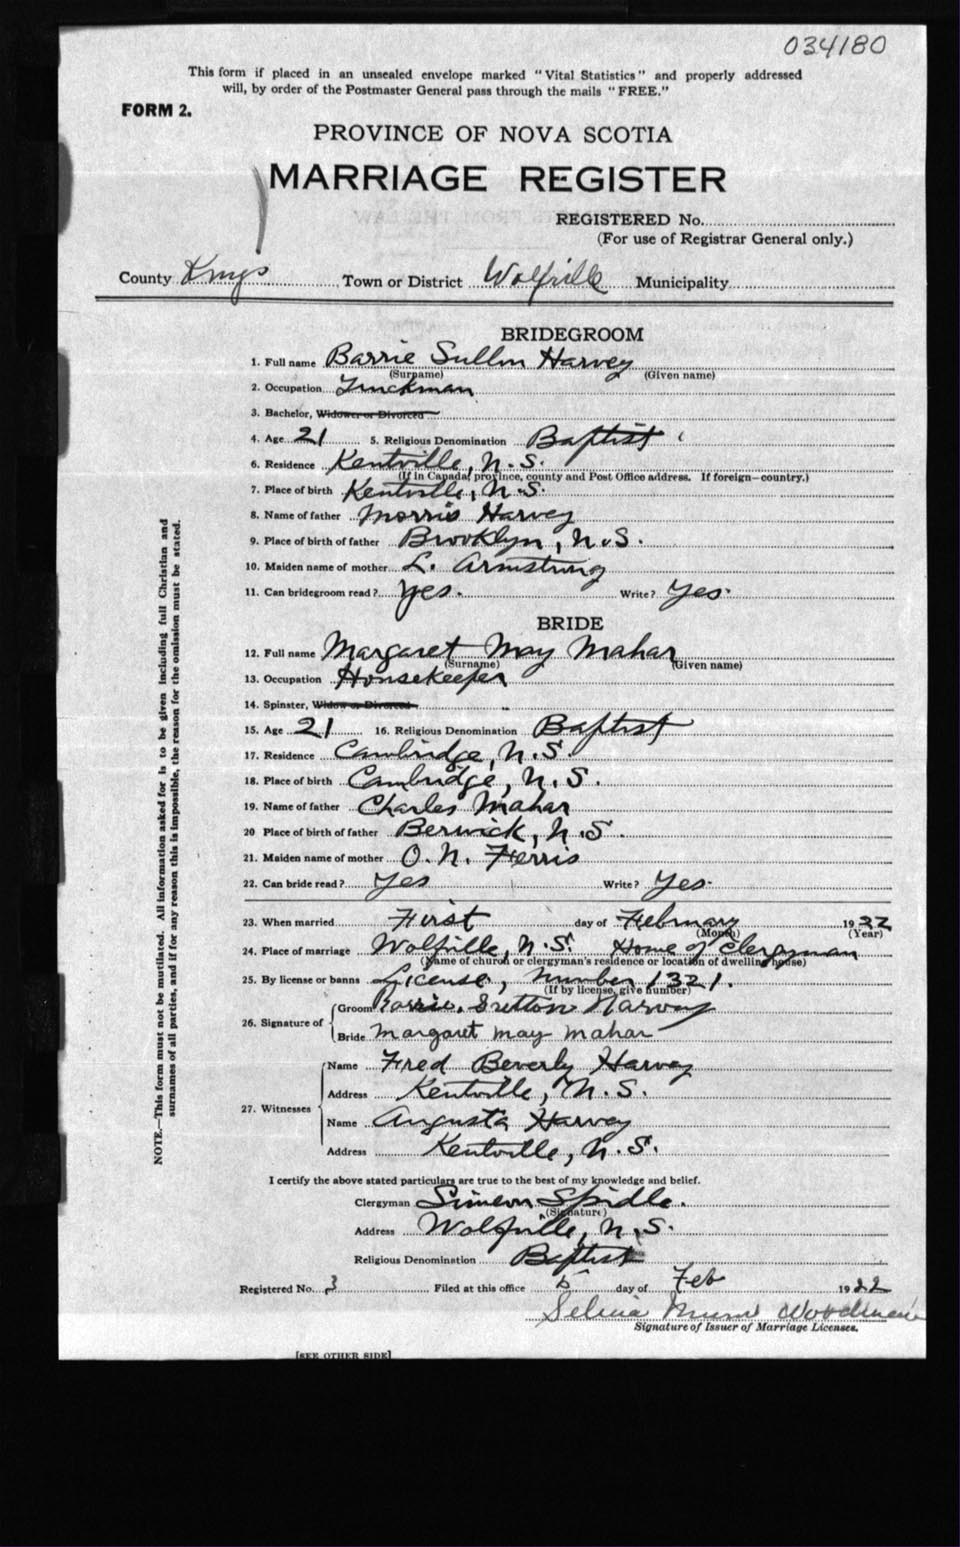 034180
This form if placed in an unsealed envelope marked "Vital Statistics" and properly addressed
will, by order of the Postmaster General pass through the mails "FREE."
FORM 2.
PROVINCE OF NOVA SCOTIA
MARRIAGE REGISTER
REGISTERED No.
(For use of Registrar General only.)
County Kings Town or District Wolfville Municipality
BRIDEGROOM
1. Full name Barrie Harvey
(Surname) (Given name)
2. Occupation Truckman
3. Bachelor, Widower or Divorced
4. Age 21 5. Religious Denomination Baptist
6. Residence Kentville, N.S.
(If in Canada, province, county and Post Office address. If foreign—country.)
7. Place of birth Kentville, N.S.
8. Name of father Morris Harvey
9. Place of birth of father Brooklyn, N.S.
10. Maiden name of mother L. Armstrong
11. Can bridegroom read? Yes. Write? Yes.
BRIDE
12. Full name Margaret May Mahar
(Surname) (Given name)
13. Occupation Housekeeper
14. Spinster, Widow or Divorced
15. Age 21 16. Religious Denomination Baptist
17. Residence Cambridge, N.S.
18. Place of birth Cambridge, N.S.
19. Name of father Charles Mahar
20 Place of birth of father Berwick, N.S.
21. Maiden name of mother O. N. Ferris
22. Can bride read? Yes Write? Yes.
23. When married First day of February 1922
(Month) (Year)
24. Place of marriage Wolfville, N.S. Home of Clergyman
(Name of church or clergyman's residence or location of dwelling house)
25. By license or banns License, Number 1321.
(If by license, give number)
26. Signature of Groom Barrie Sutton Harvey
Bride Margaret May Mahar
27. Witnesses Name Fred Beverly Harvey
Address Kentville, N.S.
Name Augusta Harvey
Address Kentville, N.S.
I certify the above stated particulars are true to the best of my knowledge and belief.
Clergyman Simeon Spidle.
(Signature)
Address Wolfville, N.S.
Religious Denomination Baptist
Registered No. 3 Filed at this office 5 day of Feb 1922
Selina Woodman
Signature of Issuer of Marriage Licenses.
[SEE OTHER SIDE]
NOTE.—This form must not be mutilated. All information asked for is to be given including full Christian and
surnames of all parties, and if for any reason this is impossible, the reason for the omission must be stated.